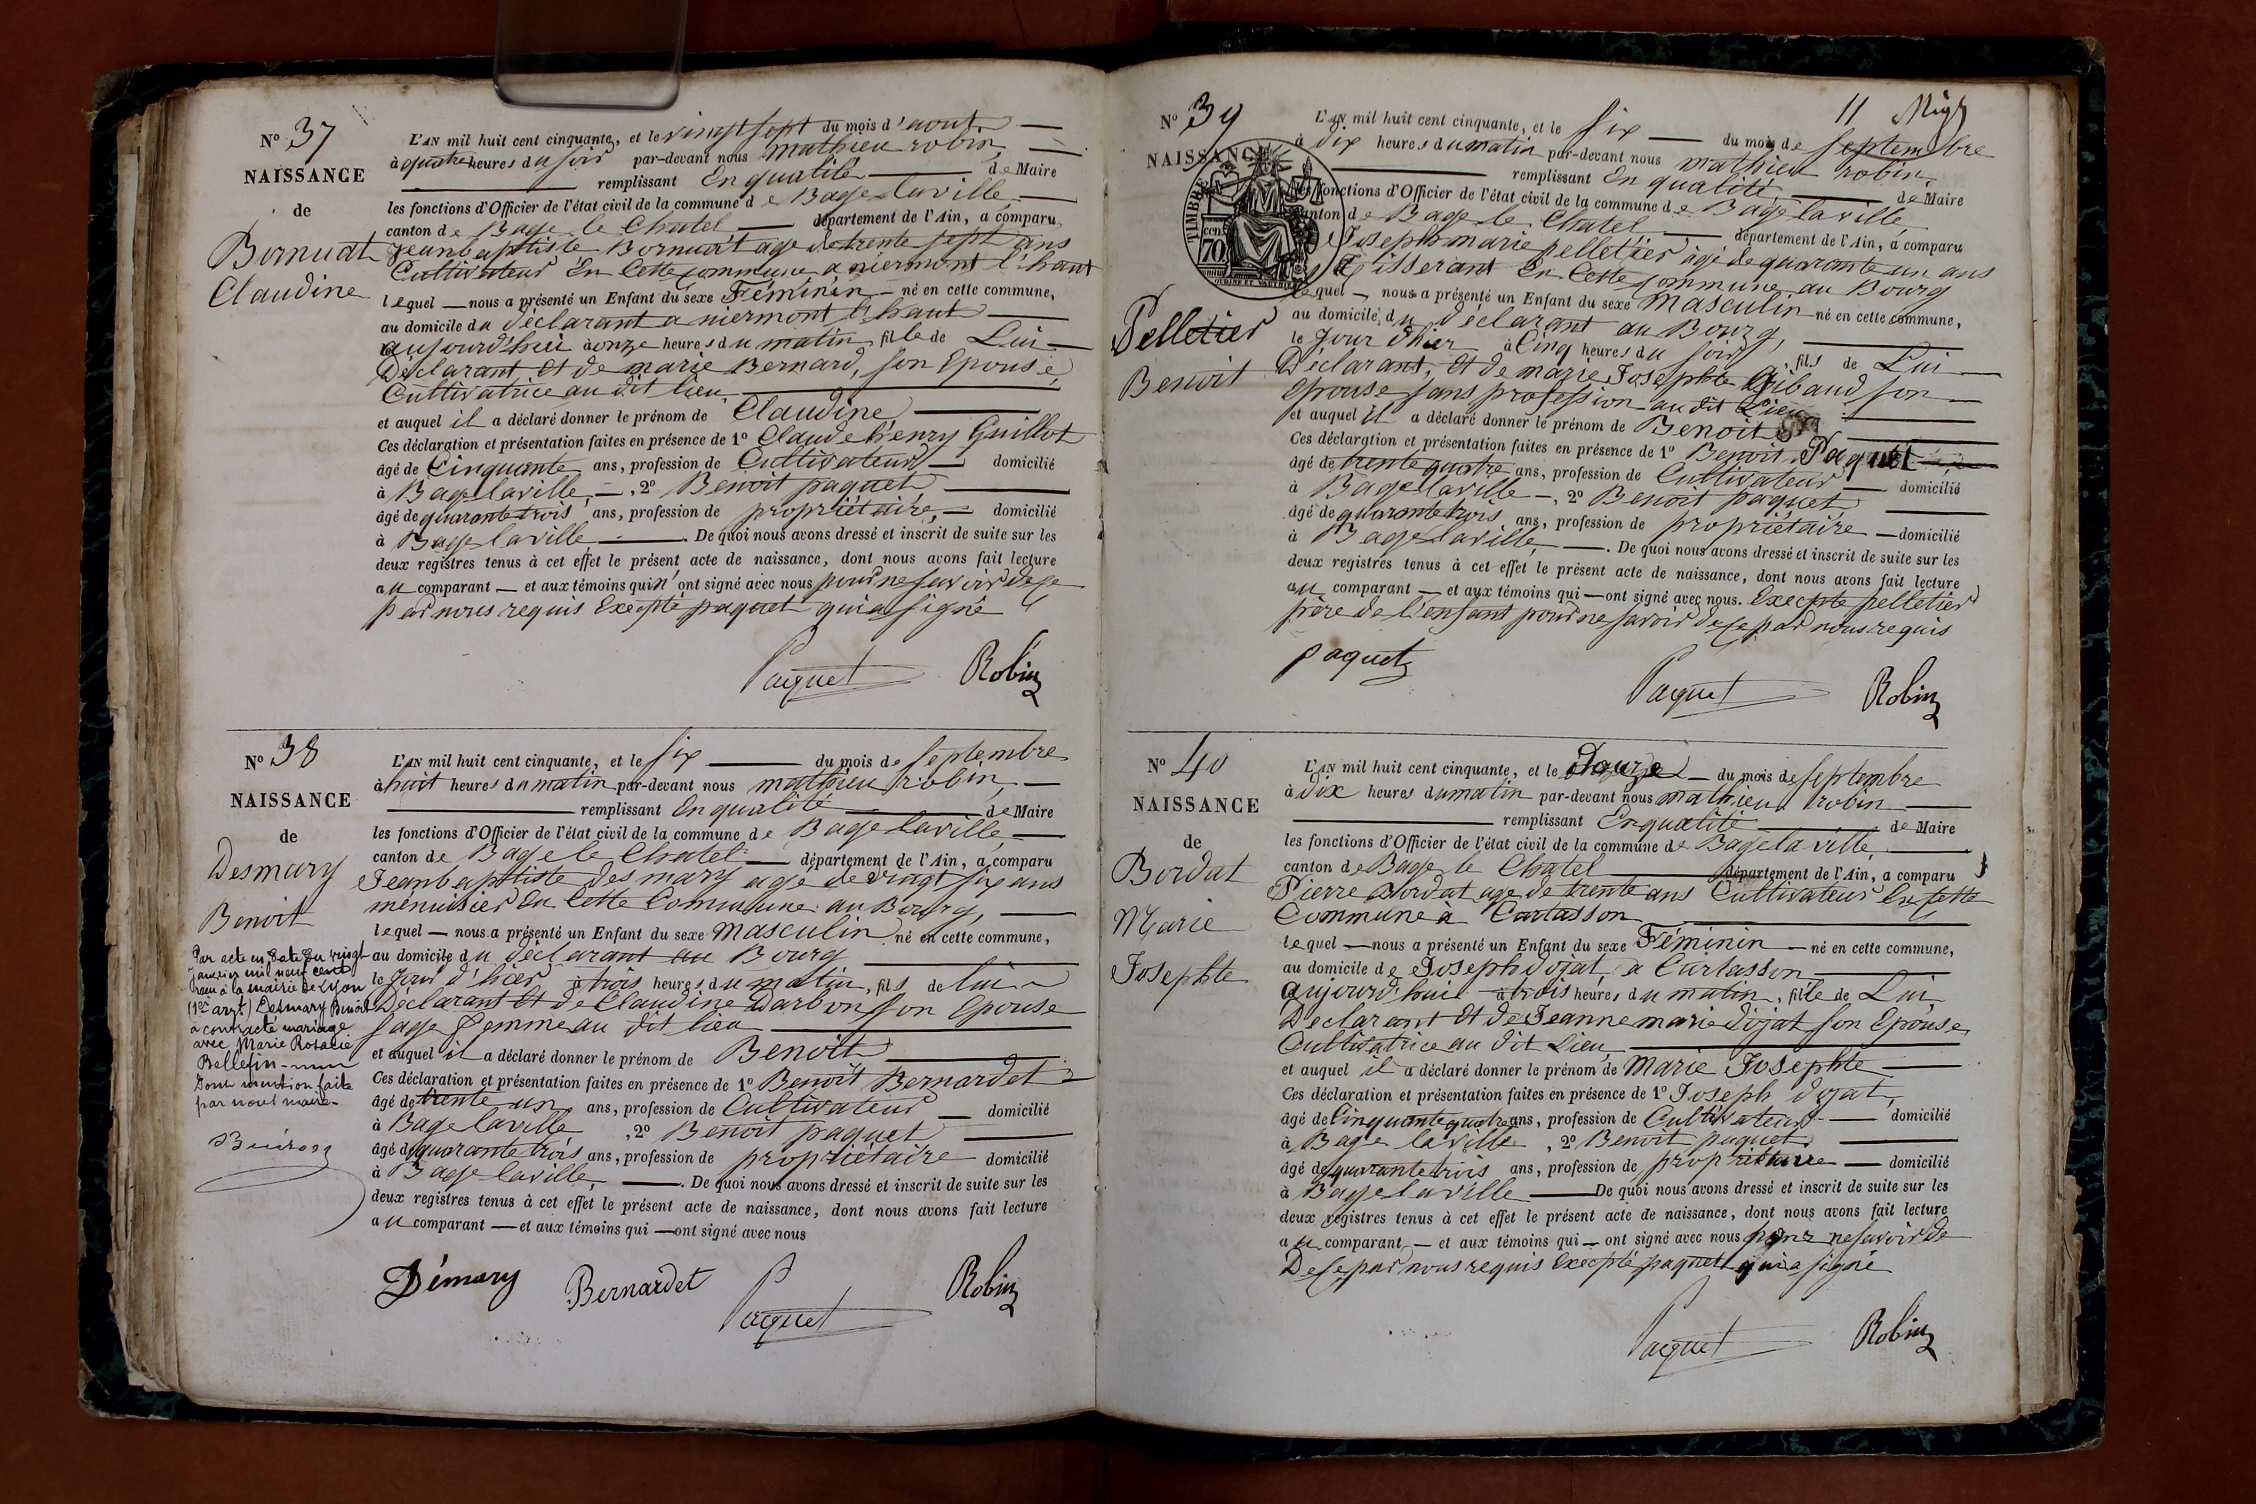 N° 37
NAISSANCE
de
Bornuat
Claudine
L'AN mil huit cent cinquante, et le vingt sept du mois d'aout
à quatre heures du soir par-devant nous mathieu robin,
remplissant En qualité de Maire
les fonctions d'Officier de l'état civil de la commune de Bage laville
canton de Bage le Chatel département de l'Ain, a comparu
Jeanbaptiste Bornuat agé de trente sept ans
Cultivateur En Cette Commune a niermont l'haut
lequel nous a présenté un Enfant du sexe Féminin né en cette commune,
au domicile du déclarant a niermont l'haut
aujourd'hui à onze heures du matin fille de Lui
Déclarant Et de marie Bernard, son Epouse,
Cultivatrice au dit lieu
et auquel il a déclaré donner le prénom de Claudine
Ces déclaration et présentation faites en présence de 1° Claude henry Guillot
âgé de Cinquante ans, profession de Cultivateur domicilié
à Bage laville, 2° Benoit paquet
âgé de quarante trois ans, profession de propriétaire, domicilié
à Bage laville. De quoi nous avons dressé et inscrit de suite sur les
deux registres tenus à cet effet le présent acte de naissance, dont nous avons fait lecture
au comparant et aux témoins qui n'ont signé avec nous pour ne savoir de ce
par nous requis Excepté paquet qui a signé
Paquet Robin
N° 38
NAISSANCE
de
Desmary
Benoit
Par acte en date du vingt
janvier mil neuf cent
reçu à la mairie de Lyon
(1er arrt) Desmary Benoit
a contracté mariage
avec Marie Rosalie
Bellefin
Dont mention faite
par nous maire
L'AN mil huit cent cinquante, et le six du mois de septembre
à huit heures du matin par-devant nous mathieu robin,
remplissant En qualité de Maire
les fonctions d'Officier de l'état civil de la commune de Bage laville,
canton de Bage le Chatel département de l'Ain, a comparu
Jeanbaptiste desmary agé de vingt six ans
menuisier En Cette Commune au Bourg,
lequel nous a présenté un Enfant du sexe Masculin né en cette commune,
au domicile du déclarant au Bourg
le Jour d'hier à trois heures du matin, fils de lui
Déclarant Et de Claudine Darbon son Epouse
sage femme au dit lieu
et auquel il a déclaré donner le prénom de Benoit
Ces déclaration et présentation faites en présence de 1° Benoit Bernardet
âgé de trente un ans, profession de Cultivateur domicilié
à Bage laville, 2° Benoit paquet
âgé de quarante trois ans, profession de propriétaire domicilié
à Bage laville. De quoi nous avons dressé et inscrit de suite sur les
deux registres tenus à cet effet le présent acte de naissance, dont nous avons fait lecture
au comparant et aux témoins qui ont signé avec nous
Démary Bernardet Paquet Robin
11
N° 39
NAISSANCE
TIMBRE
70
Pelletier
Benoit
L'AN mil huit cent cinquante, et le six du mois de septembre
à dix heures du matin par-devant nous mathieu robin
remplissant En qualité de Maire
les fonctions d'Officier de l'état civil de la commune de Bage laville
canton de Bage le Chatel département de l'Ain, a comparu
Joseph marie pelletier agé de quarante un ans
Tisserant En Cette Commune au Bourg
lequel nous a présenté un Enfant du sexe Masculin né en cette commune,
au domicile du déclarant au Bourg,
le Jour d'hier à Cinq heures du soir, fils de Lui
Déclarant, Et de marie Josephte Gibaud son
Epouse sans profession au dit Lieu
et auquel il a déclaré donner le prénom de Benoit
Ces déclaration et présentation faites en présence de 1° Benoit Paquet
âgé de trente quatre ans, profession de Cultivateur domicilié
à Bage laville, 2° Benoit paquet
âgé de quarante trois ans, profession de propriétaire domicilié
à Bage laville. De quoi nous avons dressé et inscrit de suite sur les
deux registres tenus à cet effet le présent acte de naissance, dont nous avons fait lecture
au comparant et aux témoins qui ont signé avec nous. Excepte pelletier
père de l'enfant pour ne savoir de ce par nous requis
paquet Paquet Robin
N° 40
NAISSANCE
de
Bordat
Marie
Josephte
L'AN mil huit cent cinquante, et le Douze du mois de septembre
à dix heures du matin par-devant nous mathieu robin
remplissant En qualité de Maire
les fonctions d'Officier de l'état civil de la commune de Bage la ville,
canton de Bage le Chatel département de l'Ain, a comparu
Pierre Bordat age de trente ans Cultivateur En Cette
Commune à Cartasson
lequel nous a présenté un Enfant du sexe Féminin né en cette commune,
au domicile de Joseph dojat, a Cartasson
aujourd'hui à trois heures du matin, fille de Lui
Declarant Et de Jeanne marie dojat son Epouse,
Cultivatrice au dit Lieu,
et auquel il a déclaré donner le prénom de Marie Josephte
Ces déclaration et présentation faites en présence de 1° Joseph dojat,
âgé de Cinquante quatre ans, profession de Cultivateur domicilié
à Bage laville, 2° Benoit paquet
âgé de quarante trois ans, profession de propriétaire domicilié
à Bage laville De quoi nous avons dressé et inscrit de suite sur les
deux registres tenus à cet effet le présent acte de naissance, dont nous avons fait lecture
au comparant et aux témoins qui ont signé avec nous pour ne savoir de
De ce par nous requis Excepté paquet qui a signé
Paquet Robin